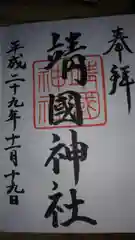 奉拝
靖國神社
平成二十九年十一月十九日